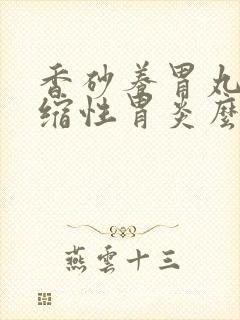 香砂養胃丸
縮性胃炎麼
燕雲十三